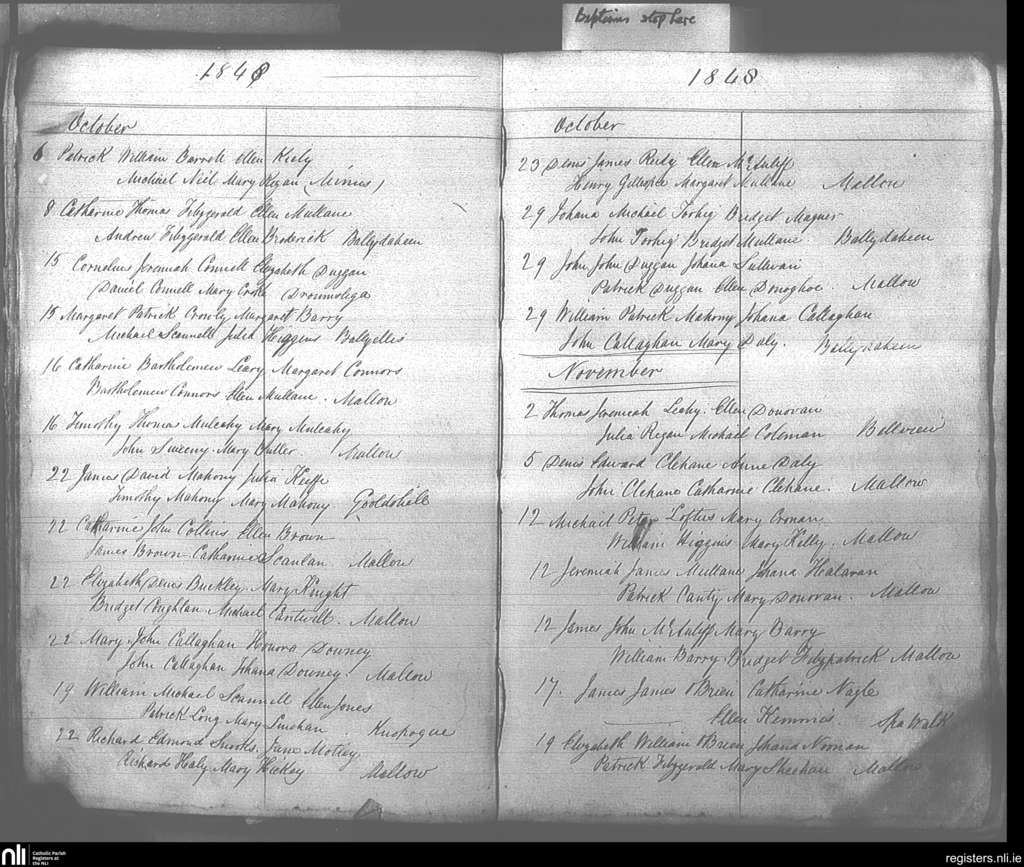 Baptisms stop here
1848
October
6 Patrick William Barrett Ellen Kiely
Michael Niel Mary Regan
8 Catharine Thomas Fitzgerald Ellen Mullane
Andrew Fitzgerald Ellen Broderick Ballydaheen
15 Cornelius Jeremiah Connell Elizabeth Duggan
Daniel Connell Mary Croke
15 Margaret Patrick Crowly Margaret Barry
Michael Scannell Julia Higgins Ballyellis
16 Catharine Bartholemew Leary Margaret Connors
Bartholemew Connors Ellen Mullane. Mallow
16 Timothy Thomas Mulcahy Mary Mulcahy
John Sweeny Mary Cutler Mallow
22 James David Mahony Julia Keeffe
Timothy Mahony Mary Mahony. Gooldshill
22 Catharine John Collins Ellen Brown
James Brown Catharine Scanlan. Mallow
22 Elizabeth Denis Buckley Mary Knight
Bridget Coughlan Michael Cantwell. Mallow
22 Mary John Callaghan Honora Downey
John Callaghan Johana Downey. Mallow
19 William Michael Scannell Ellen Jones
Patrick Long Mary Linehan. Knopogue
22 Richard Edmond Jane Motley
Richard Healy Mary Hickey Mallow
1848
October
23 Denis James Reidy Ellen McAuliff
Henry Gillespie Margaret Mullane Mallow
29 Johana Michael Torhig Bridget Magner
John Torhig Bridget Mullane Ballydaheen
29 John John Duggan Johana Sullivan
Patrick Duggan Ellen Donoghoe. Mallow
29 William Patrick Mahony Johana Callaghan
John Callaghan Mary Daly. Ballydaheen
November
2 Thomas Jeremiah Leahy. Ellen Donovan
Julia Regan Michael Coleman Bellview
5 Denis Edward Clehane Anne Daly
John Clehane Catharine Clehane. Mallow
12 Michail Peter Loftus Mary Cronan
William Higgins Mary Kelly. Mallow
12 Jeremiah James Mullane Johana Halavan
Patrick Canty Mary Donovan. Mallow
12 James John McAuliff Mary Barry
William Barry Bridget Fitzpatrick Mallow
17. James James OBrien Catharine Nagle
Ellen Kemmis. Spa Walk
19 Elizabeth William OBrien Johana Noonan
Patrick Fitzgerald Mary Sheehan Mallow
nli Catholic Parish Registers at the NLI
registers.nli.ie